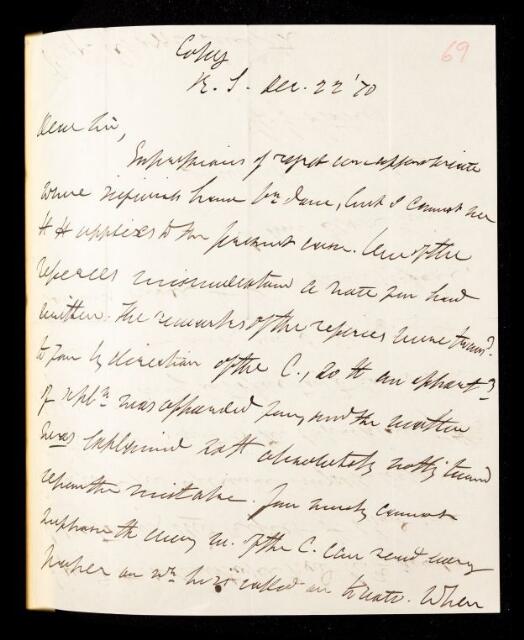 Copy
69
R. S. Dec. 22 '70
Dear Sir,
Expressions of regret are appropriate
where injuries have bn done, but I cannot see
tt tt applies to the present case. One of the
referees misunderstood a note you had
written. The remarks of the referees were transd.
to you by direction of the C., so tt an opporty
of repln was afforded you, and the matter
was explained so tt absolutely nothg turned
upon the mistake. You surely cannot
suppose tt every m. of the C. can read every
paper on wh he is called on to vote. When